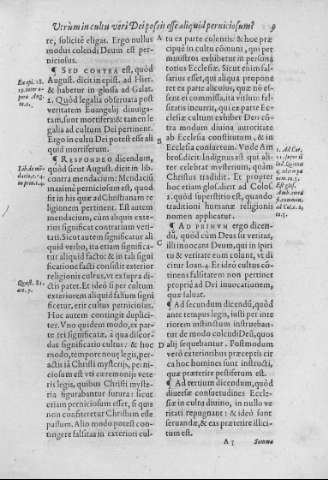 Vtrum in cultu veri Dei possit esse aliquid perniciosum? 9
re, solicitè eligat. Ergo nullus
modus colendi Deum est per
niciosus.
¶ SED CONTRA est, quòd
August. dicit in epist. ad Hier.
& habetur in glossa ad Galat.
2. Quòd legalia obseruata post
veritatem Euangelij diuulga-
tam, sunt mortifera: & tamen le
galia ad cultum Dei pertinent.
Ergo in cultu Dei potest esse ali
quid mortiferum.
¶ RESPONDEO dicendum,
quòd sicut August. dicit in lib.
contra mendacium: Mendaciũ
maximè perniciosum est, quod
fit in his quæ ad Christianam re
ligionem pertinent. Est autem
mendacium, cùm aliquis exte-
riùs significat contrarium veri-
tati. Sicut autem significatur ali
quid verbo, ita etiam significa-
tur aliquid facto: & in tali signi
ficatione facti consistit exterior
religionis cultus, vt ex supra di-
ctis patet. Et ideò si per cultum
exteriorem aliquid falsum signi
ficetur, erit cultus perniciosus.
Hoc autem contingit duplici-
ter. Vno quidem modo, ex par-
te rei significatæ, à qua discor-
dat significatio cultus: & hoc
modo, tempore nouę legis, per-
actis iã Christi mysterijs, perni-
ciosum est vti cæremonijs vete
ris legis, quibus Christi myste-
ria figurabantur futura: sicut
etiam perniciosum esset, si quis
non confiteretur Christum esse
passum. Alio modo potest con-
tingere falsitas in exteriori cul-
tu ex parte colentis: & hoc præ
cipuè in cultu communi, qui
per ministros exhibetur in per sona
Ecclesiæ. Sicut enim fal-
sarius esset, qui aliqua propone
ret ex parte alicuius, quæ nõ es-
sent ei commissa, ita vitium fal-
sitatis incurrit, qui ex parte Ec-
clesiæ cultum exhibet Deo cõ-
tra modum diuina autoritate
ab Ecclesia constitutum, & in
Ecclesia consuetum. Vnde Am
bros. dicit: Indignus est qui ali-
ter celebrat mysterium, quàm
Christus tradidit. Et propter
hoc etiam glos. dicit ad Colos.
2. quòd superstitio est, quando
traditioni humanæ religionis
nomen applicatur.
¶ AD PRIMVM ergo dicen-
dũ, quòd cùm Deus sit veritas,
illi inuocant Deum, qui in spiri
tu & veritate eum colunt, vt di
citur Ioan. 4. Et ideo cultus cõ-
tinens falsitatem non pertinet
propriè ad Dei inuocationem,
quæ saluat.
¶ Ad secundum dicendũ, quòd
ante tempus legis, iusti per inte
riorem instinctum instrueban-
tur de modo colendi Deũ, quos
alij sequebantur. Postmodum
verò exterioribus præceptis cir
ca hoc homines sunt instructi,
quæ præterire pestiferum est.
¶ Ad tertium dicendum, quòd
diuersæ consuetudines Eccle-
siæ in cultu diuino, in nullo ve
ritati repugnant: & ideò sunt
seruandæ, & eas præterire illici-
tum est.
A 5 Summa